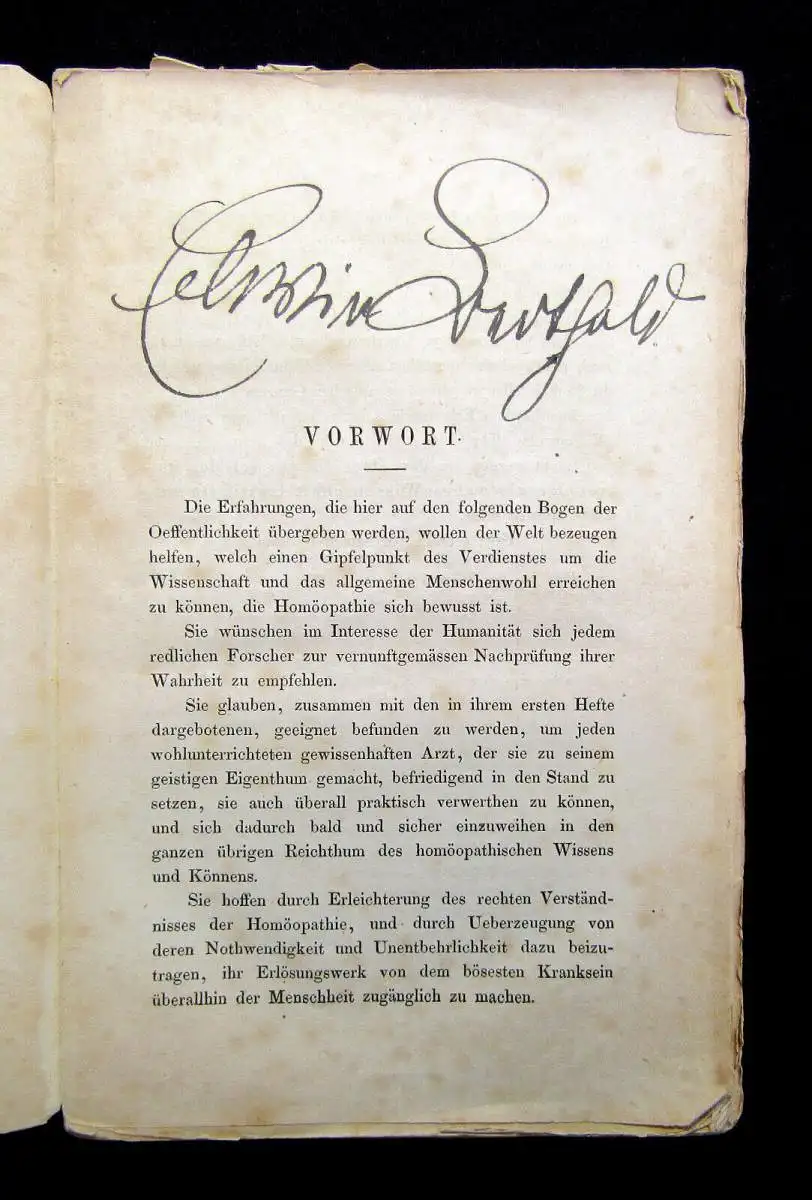 Edwin Berthold
VORWORT.
Die Erfahrungen, die hier auf den folgenden Bogen der
Oeffentlichkeit übergeben werden, wollen der Welt bezeugen
helfen, welch einen Gipfelpunkt des Verdienstes um die
Wissenschaft und das allgemeine Menschenwohl erreichen
zu können, die Homöopathie sich bewusst ist.
Sie wünschen im Interesse der Humanität sich jedem
redlichen Forscher zur vernunftgemässen Nachprüfung ihrer
Wahrheit zu empfehlen.
Sie glauben, zusammen mit den in ihrem ersten Hefte
dargebotenen, geeignet befunden zu werden, um jeden
wohlunterrichteten gewissenhaften Arzt, der sie zu seinem
geistigen Eigenthum gemacht, befriedigend in den Stand zu
setzen, sie auch überall praktisch verwerthen zu können,
und sich dadurch bald und sicher einzuweihen in den
ganzen übrigen Reichthum des homöopathischen Wissens
und Könnens.
Sie hoffen durch Erleichterung des rechten Verständ-
nisses der Homöopathie, und durch Ueberzeugung von
deren Nothwendigkeit und Unentbehrlichkeit dazu beizu-
tragen, ihr Erlösungswerk von dem bösesten Kranksein
überallhin der Menschheit zugänglich zu machen.